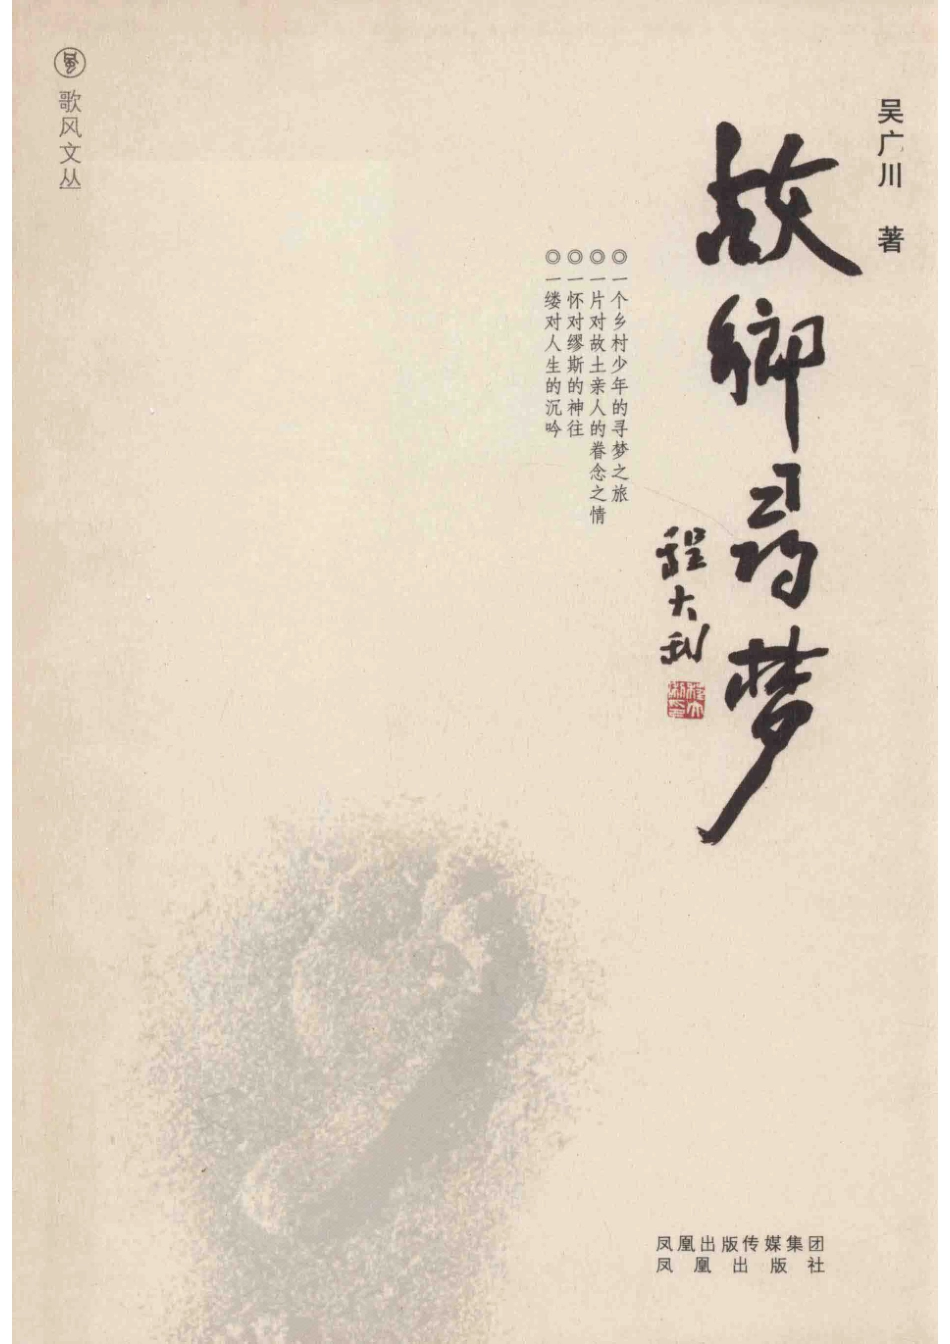 吴广川 著
故鄉尋梦
程大利
◎一个乡村少年的寻梦之旅
◎一片对故土亲人的眷念之情
◎一怀对缪斯的神往
◎一缕对人生的沉吟
歌风文丛
凤凰出版传媒集团
凤凰出版社